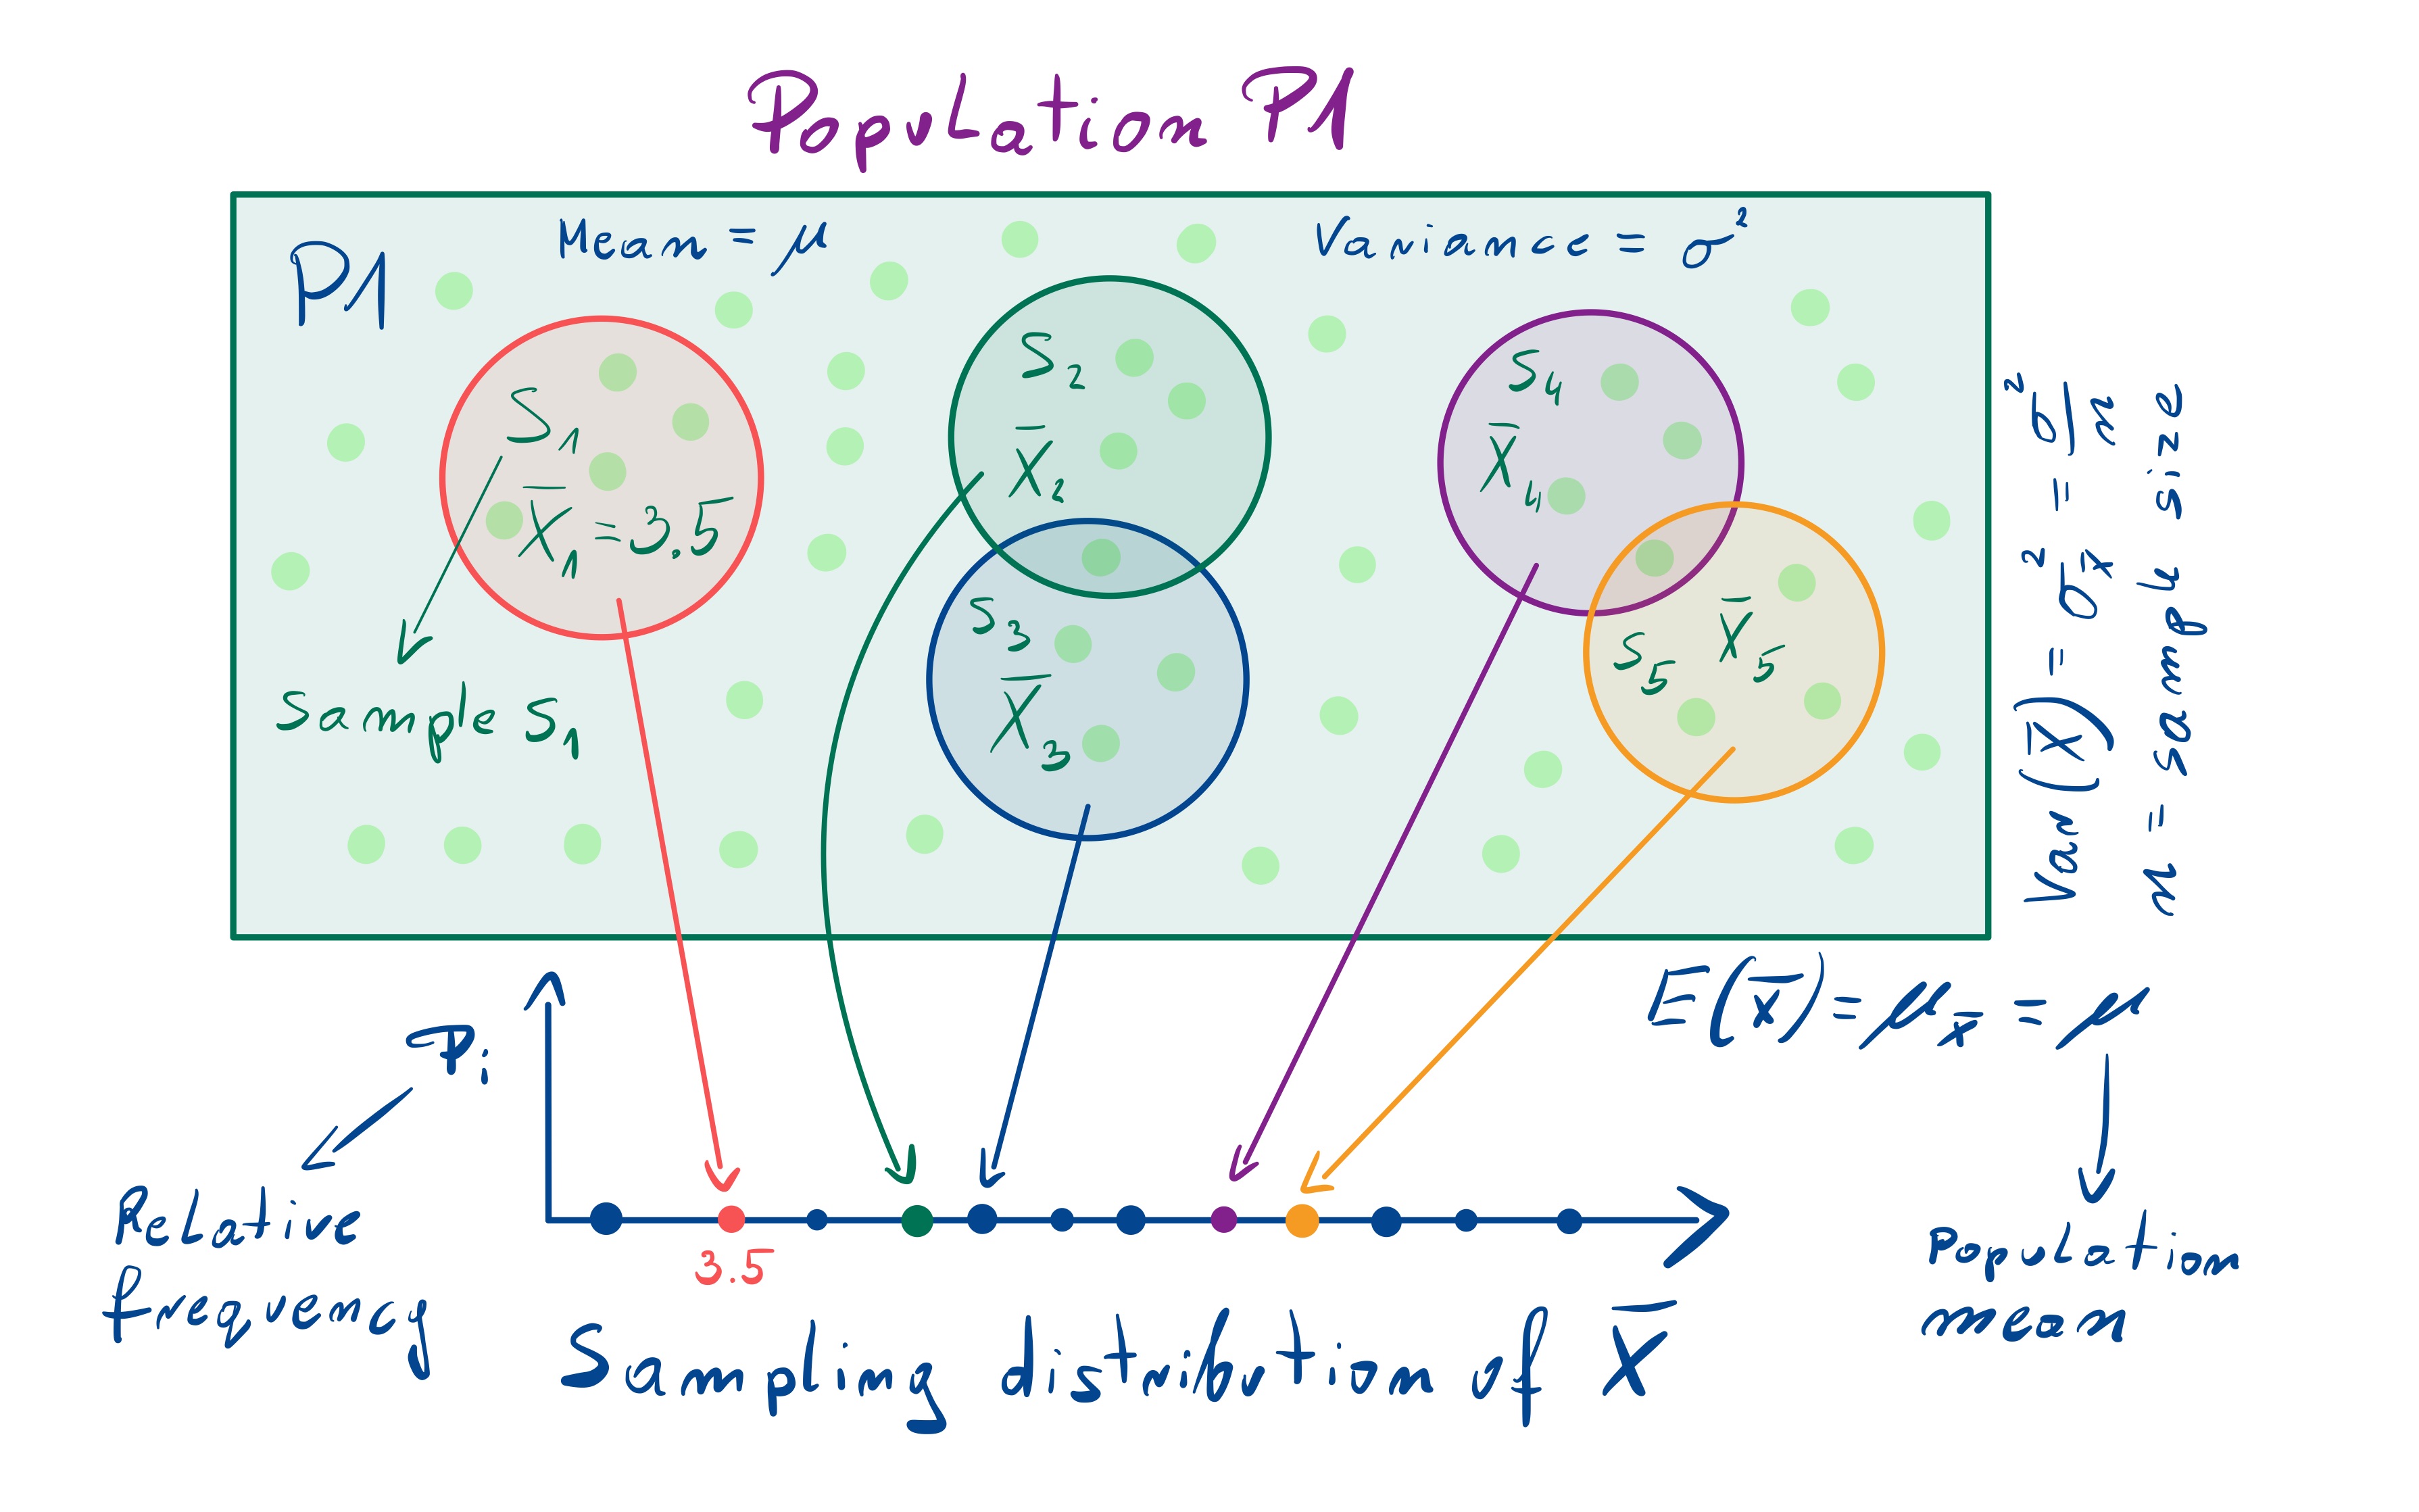 Population P1
P1
Mean = μ
Variance = σ²
S₁
X̄₁ = 3.5
Sample S₁
S₂
X̄₂
S₃
X̄₃
S₄
X̄₄
S₅
X̄₅
Var(X̄) = σ²x̄ = σ²/n
n = sample size
E(x̄) = μx̄ = μ
Population
mean
Pᵢ
Relative
frequency
3.5
Sampling distribution of X̄